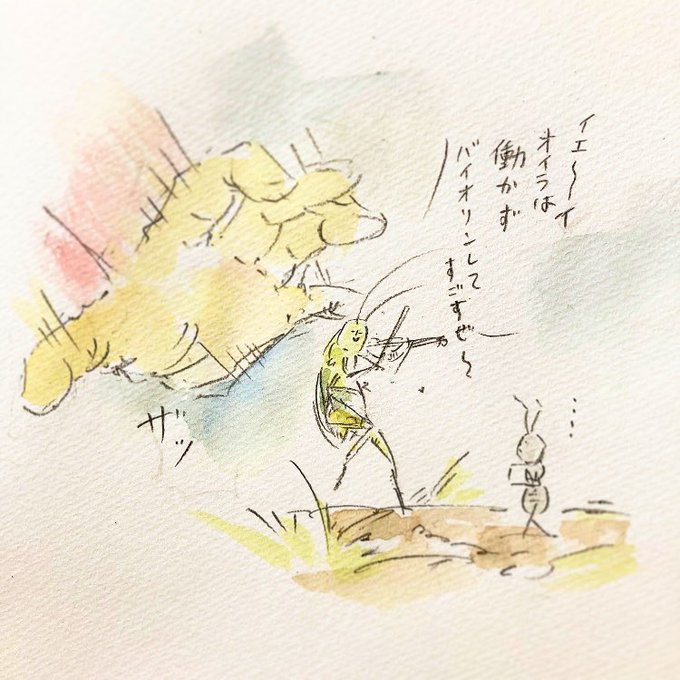 イエ〜イ
オイラは
働かず
バイオリンして
すごすぜ〜
ザッ
....